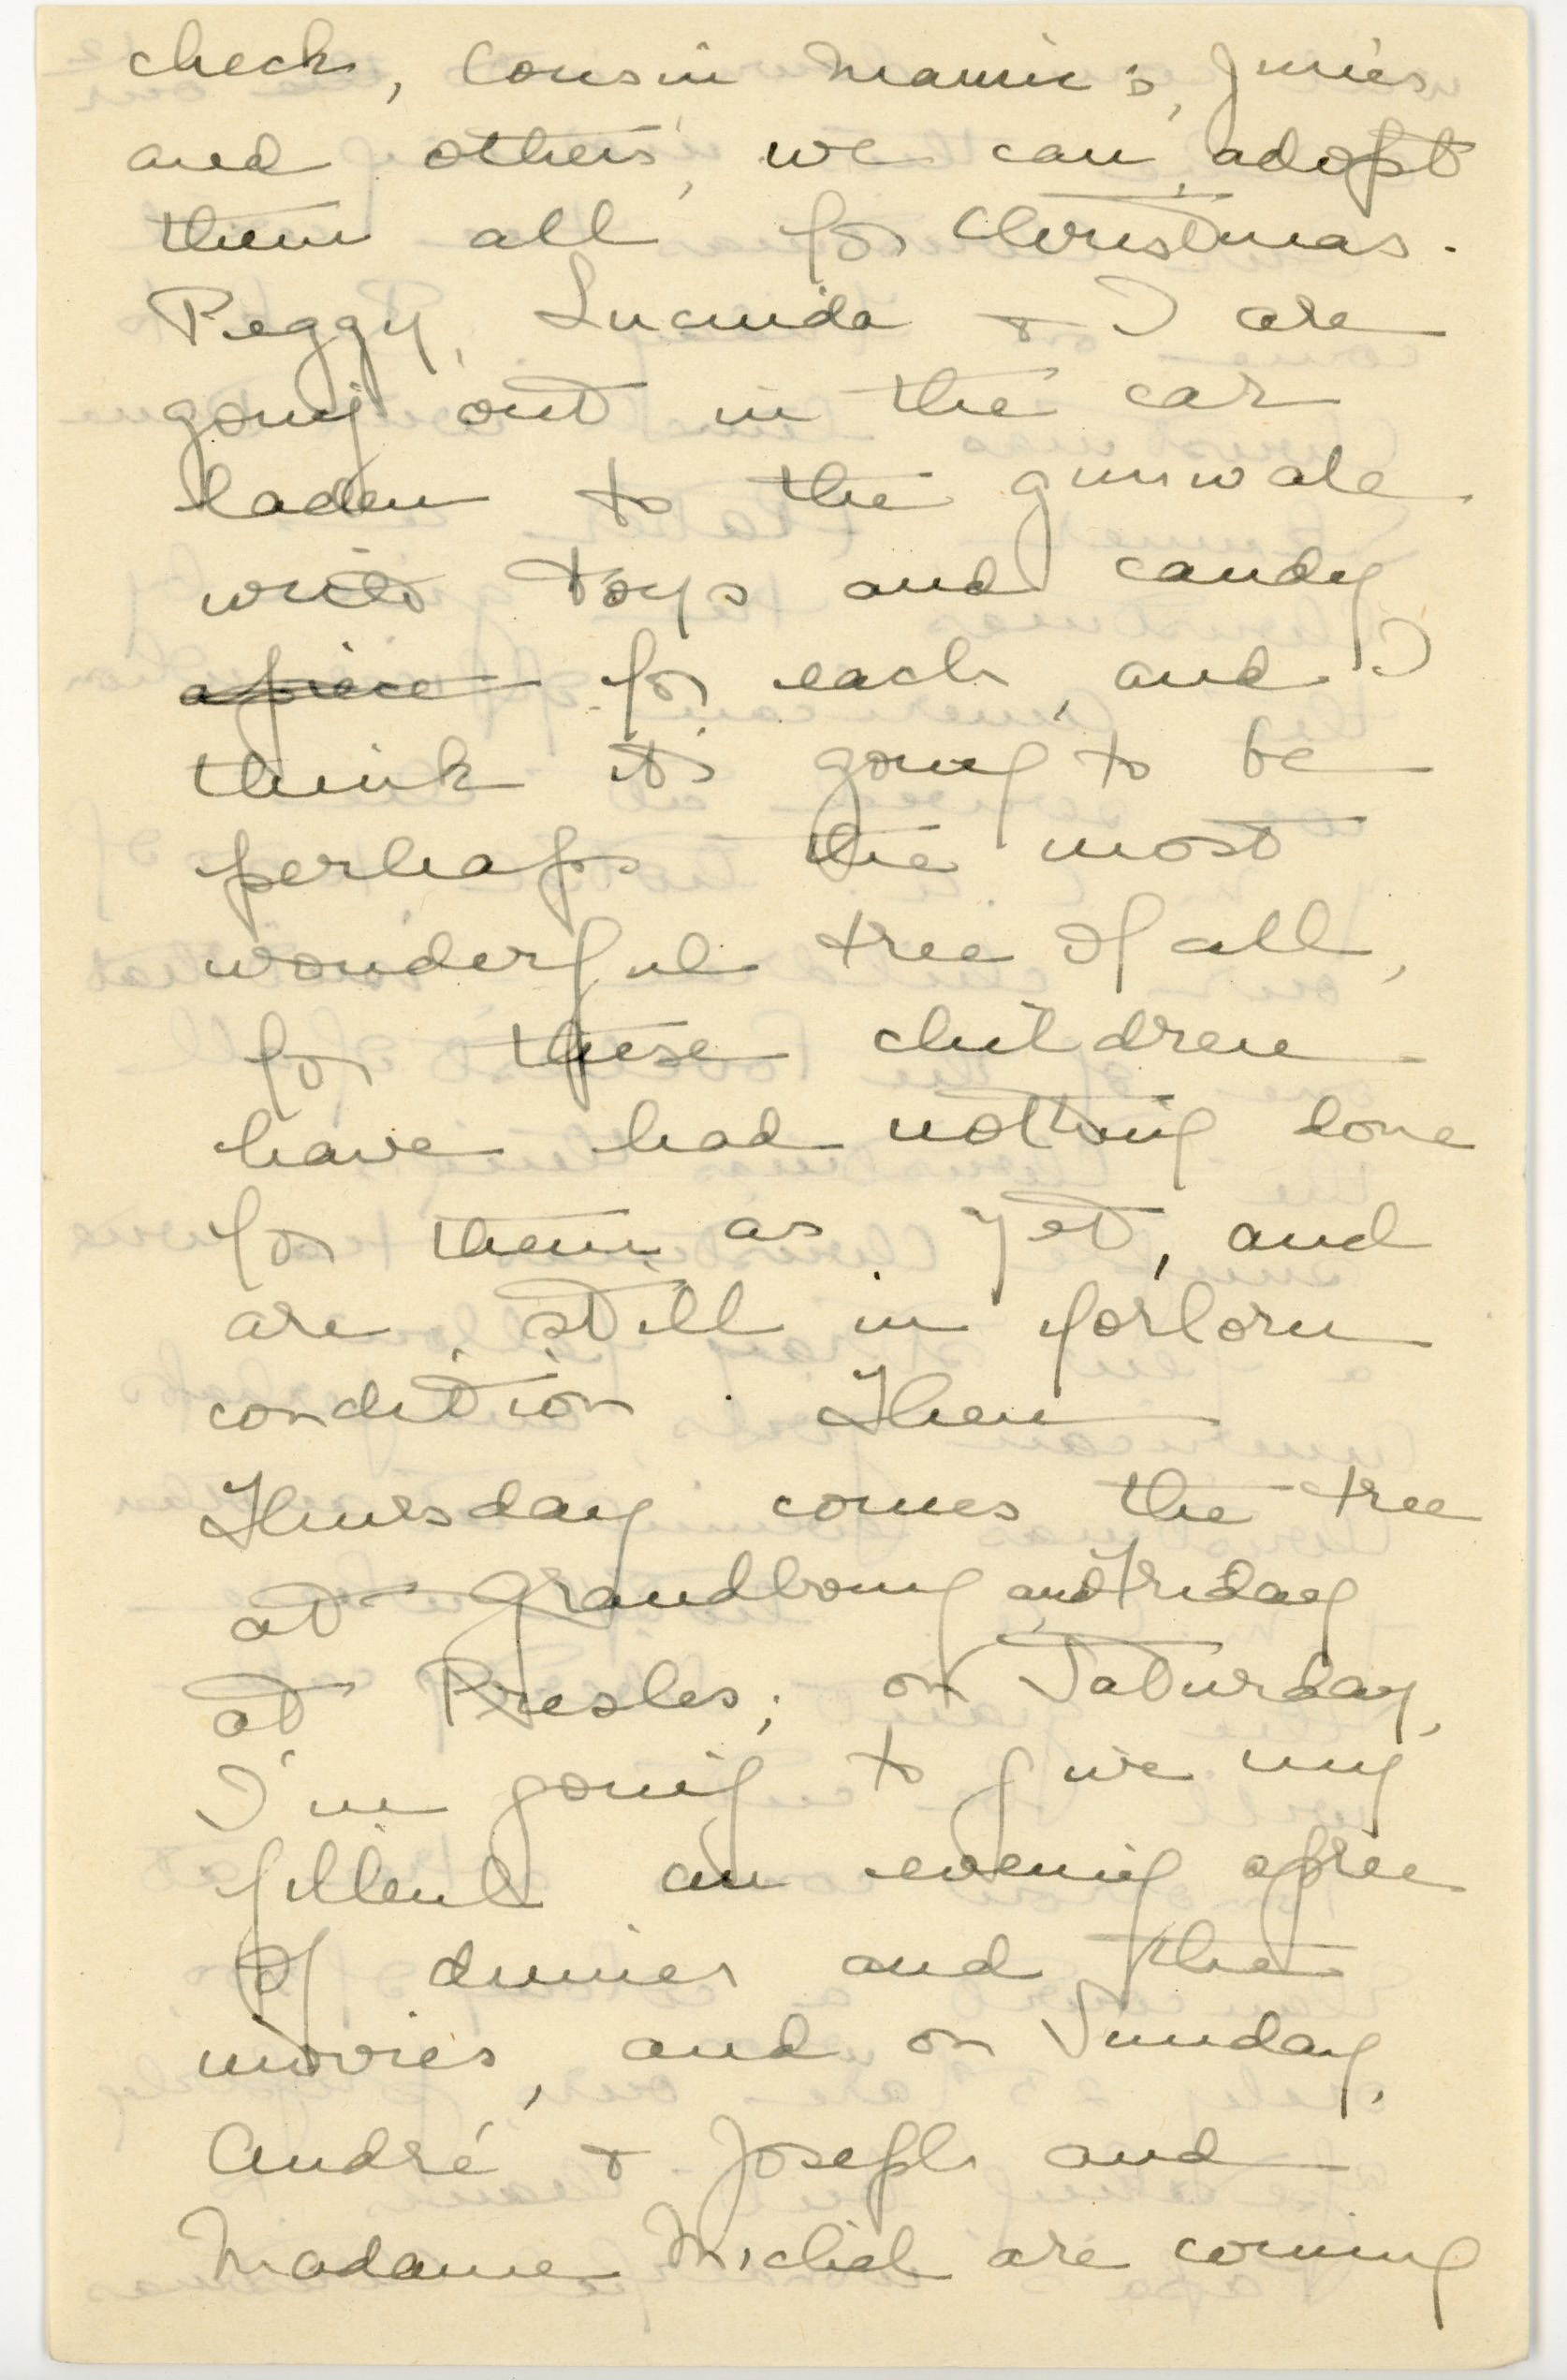 check, Cousin Mamie's, Junie's
and others, we can adopt
them all for Christmas.
Peggy, Lucinda & I are
going out in the car
laden to the gunwale
with toys and candy
apiece for each, and I
think its going to be
perhaps the most
wonderful tree of all,
for these children
have had nothing done
for them as yet, and
are still in forlorn
condition. Then
Thursday comes the tree
at Grandbouy and Friday
at Presles; on Saturday,
I'm going to give my
filleul an evening spree
of dinner and the
movies, and on Sunday,
André & Joseph and
Madame Michel are coming